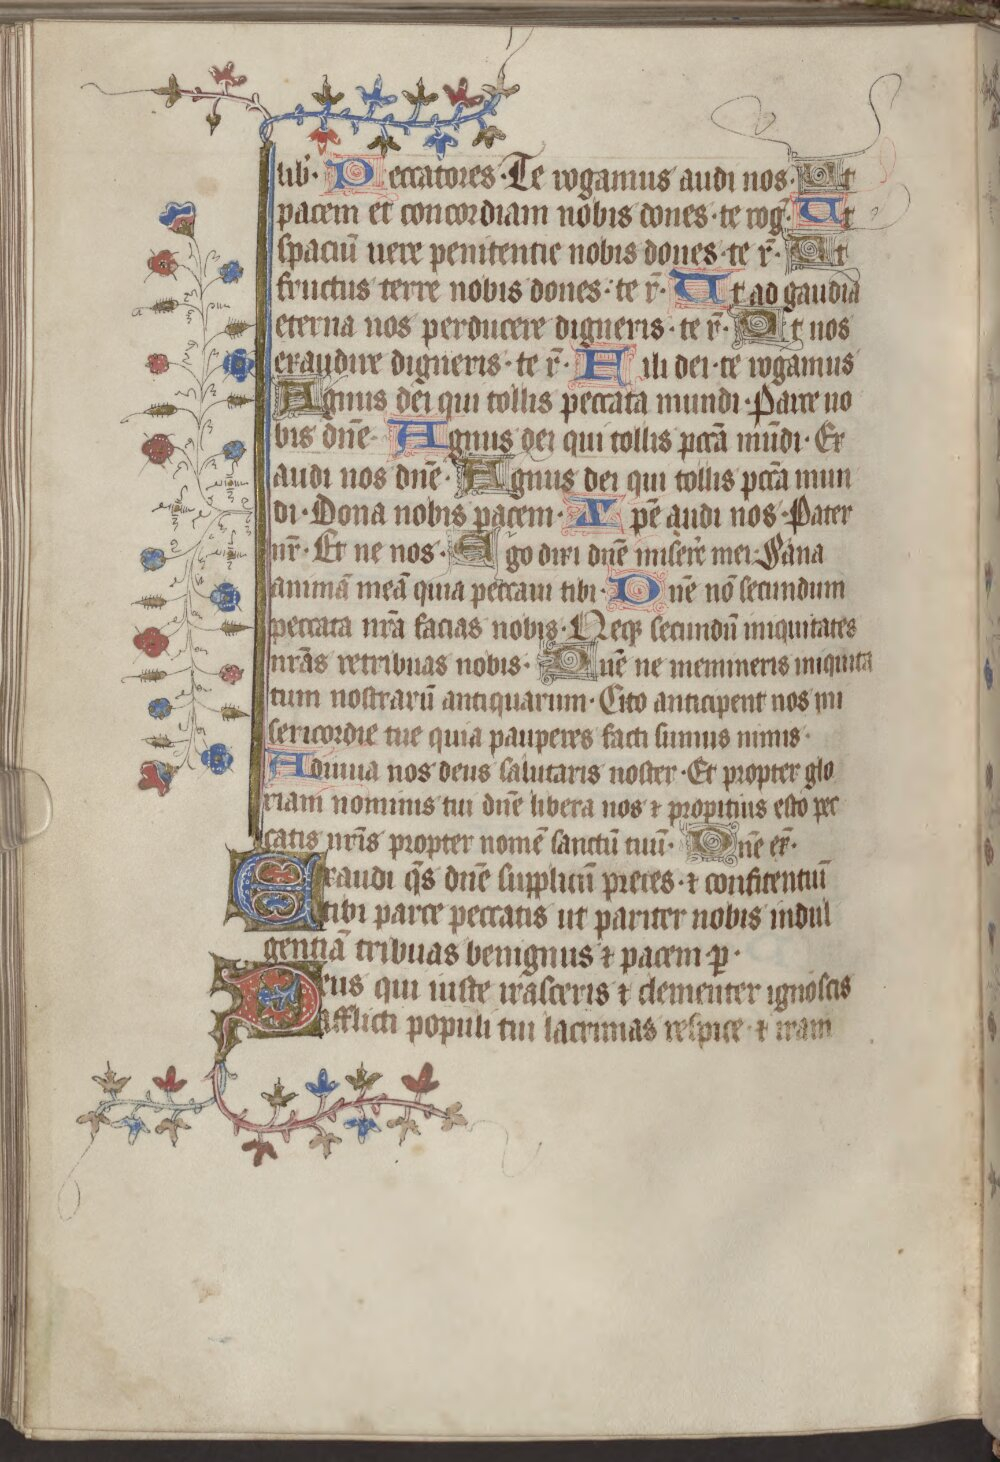 lib̄. Peccatores. Te rogamus audi nos. Ut
pacem et concordiam nobis dones. te roḡ. Ut
spaciū uere penitentie nobis dones. te r̄. Ut
fructus terre nobis dones. te r̄. Ut ad gaudia
eterna nos perducere digneris. te r̄. Ut nos
exaudire digneris. te r̄. Fili dei. te rogamus
Agnus dei qui tollis peccata mundi. Parce no
bis dn̄e. Agnus dei qui tollis pccā mūdi. Ex
audi nos dn̄e. Agnus dei qui tollis pccā mun
di. Dona nobis pacem. X pē audi nos. Pater
nr̄. Et ne nos. Ego dixi dn̄e miserē mei. Sana
animā meā quia peccaui tibi. Dn̄e nō secundum
peccata nr̄a facias nobis. Neqꝫ secundū iniquitates
nr̄as retribuas nobis. Dn̄e ne memineris iniquita
tum nostrarū antiquarum. Cito anticipent nos mi
sericordie tue quia pauperes facti sumus nimis.
Adiuua nos deus salutaris noster. Et propter glo
riam nominis tui dn̄e libera nos ⁊ propitius esto pec
catis nr̄is propter nomē sanctū tuū. Dn̄e ex̄.
Exaudi qs̄ dn̄e supplicū preces. ⁊ confitentiū
tibi parce peccatis ut pariter nobis indul
gentiā tribuas benignus ⁊ pacem. ꝑ.
Deus qui iuste irasceris ⁊ clementer ignoscis
afflicti populi tui lacrimas respice. ⁊ iram